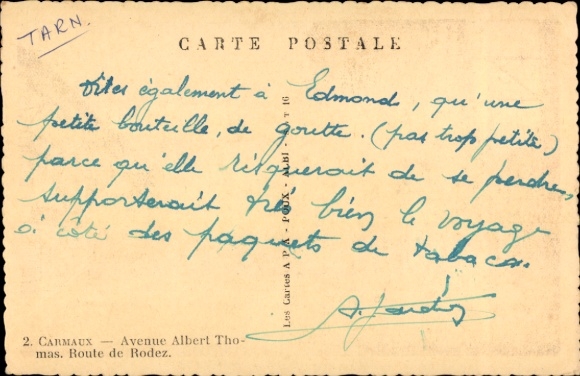 TARN.
CARTE POSTALE
Dites également à Edmond, qu'une
petite bouteille, de goutte. (pas trop petite,)
parce qu'elle risquerait de se perdre,
supporterait très bien le voyage
à côté des paquets de tabacs.
Les Cartes A P A - POUX - ALBI
16
2. CARMAUX — Avenue Albert Tho-
mas. Route de Rodez.